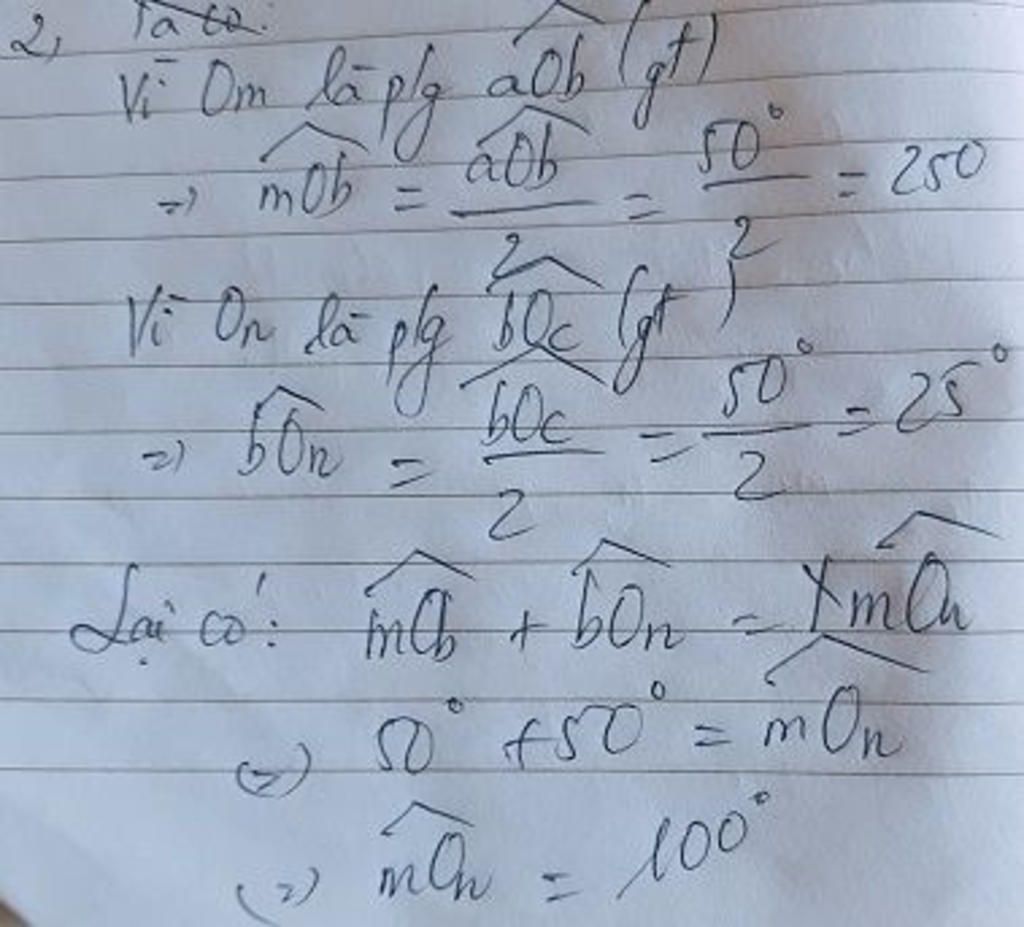 2, Ta có:
Vì Om là p/g aOb (gt)
=> mOb = aOb/2 = 50°/2 = 250
Vì On là p/g bOc (gt)
=> bOn = bOc/2 = 50°/2 = 25°
Lại có: mOb + bOn = mOn
(=) 50° + 50° = mOn
(=) mOn = 100°